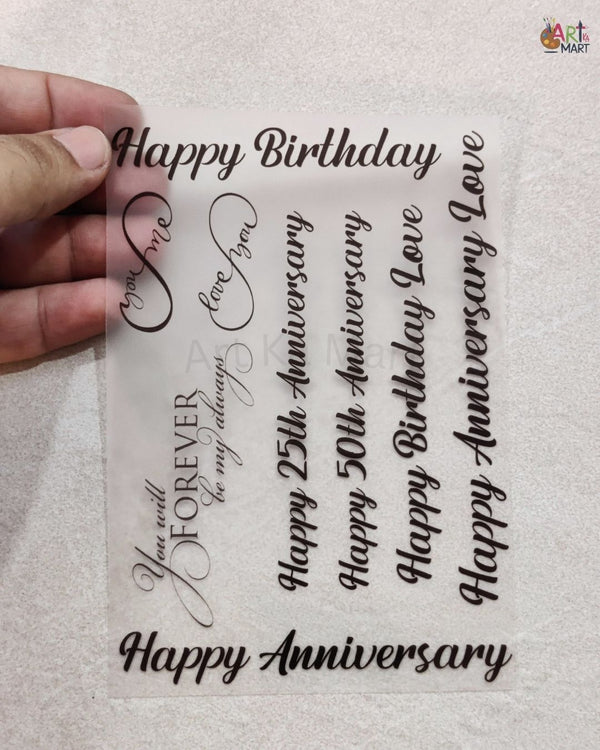 ART Ka
MART
Happy Birthday
you & me
love you
You will
FOREVER
be my always
Happy 25th Anniversary
Happy 50th Anniversary
Happy Birthday Love
Happy Anniversary Love
Art Ka Mart
Happy Anniversary